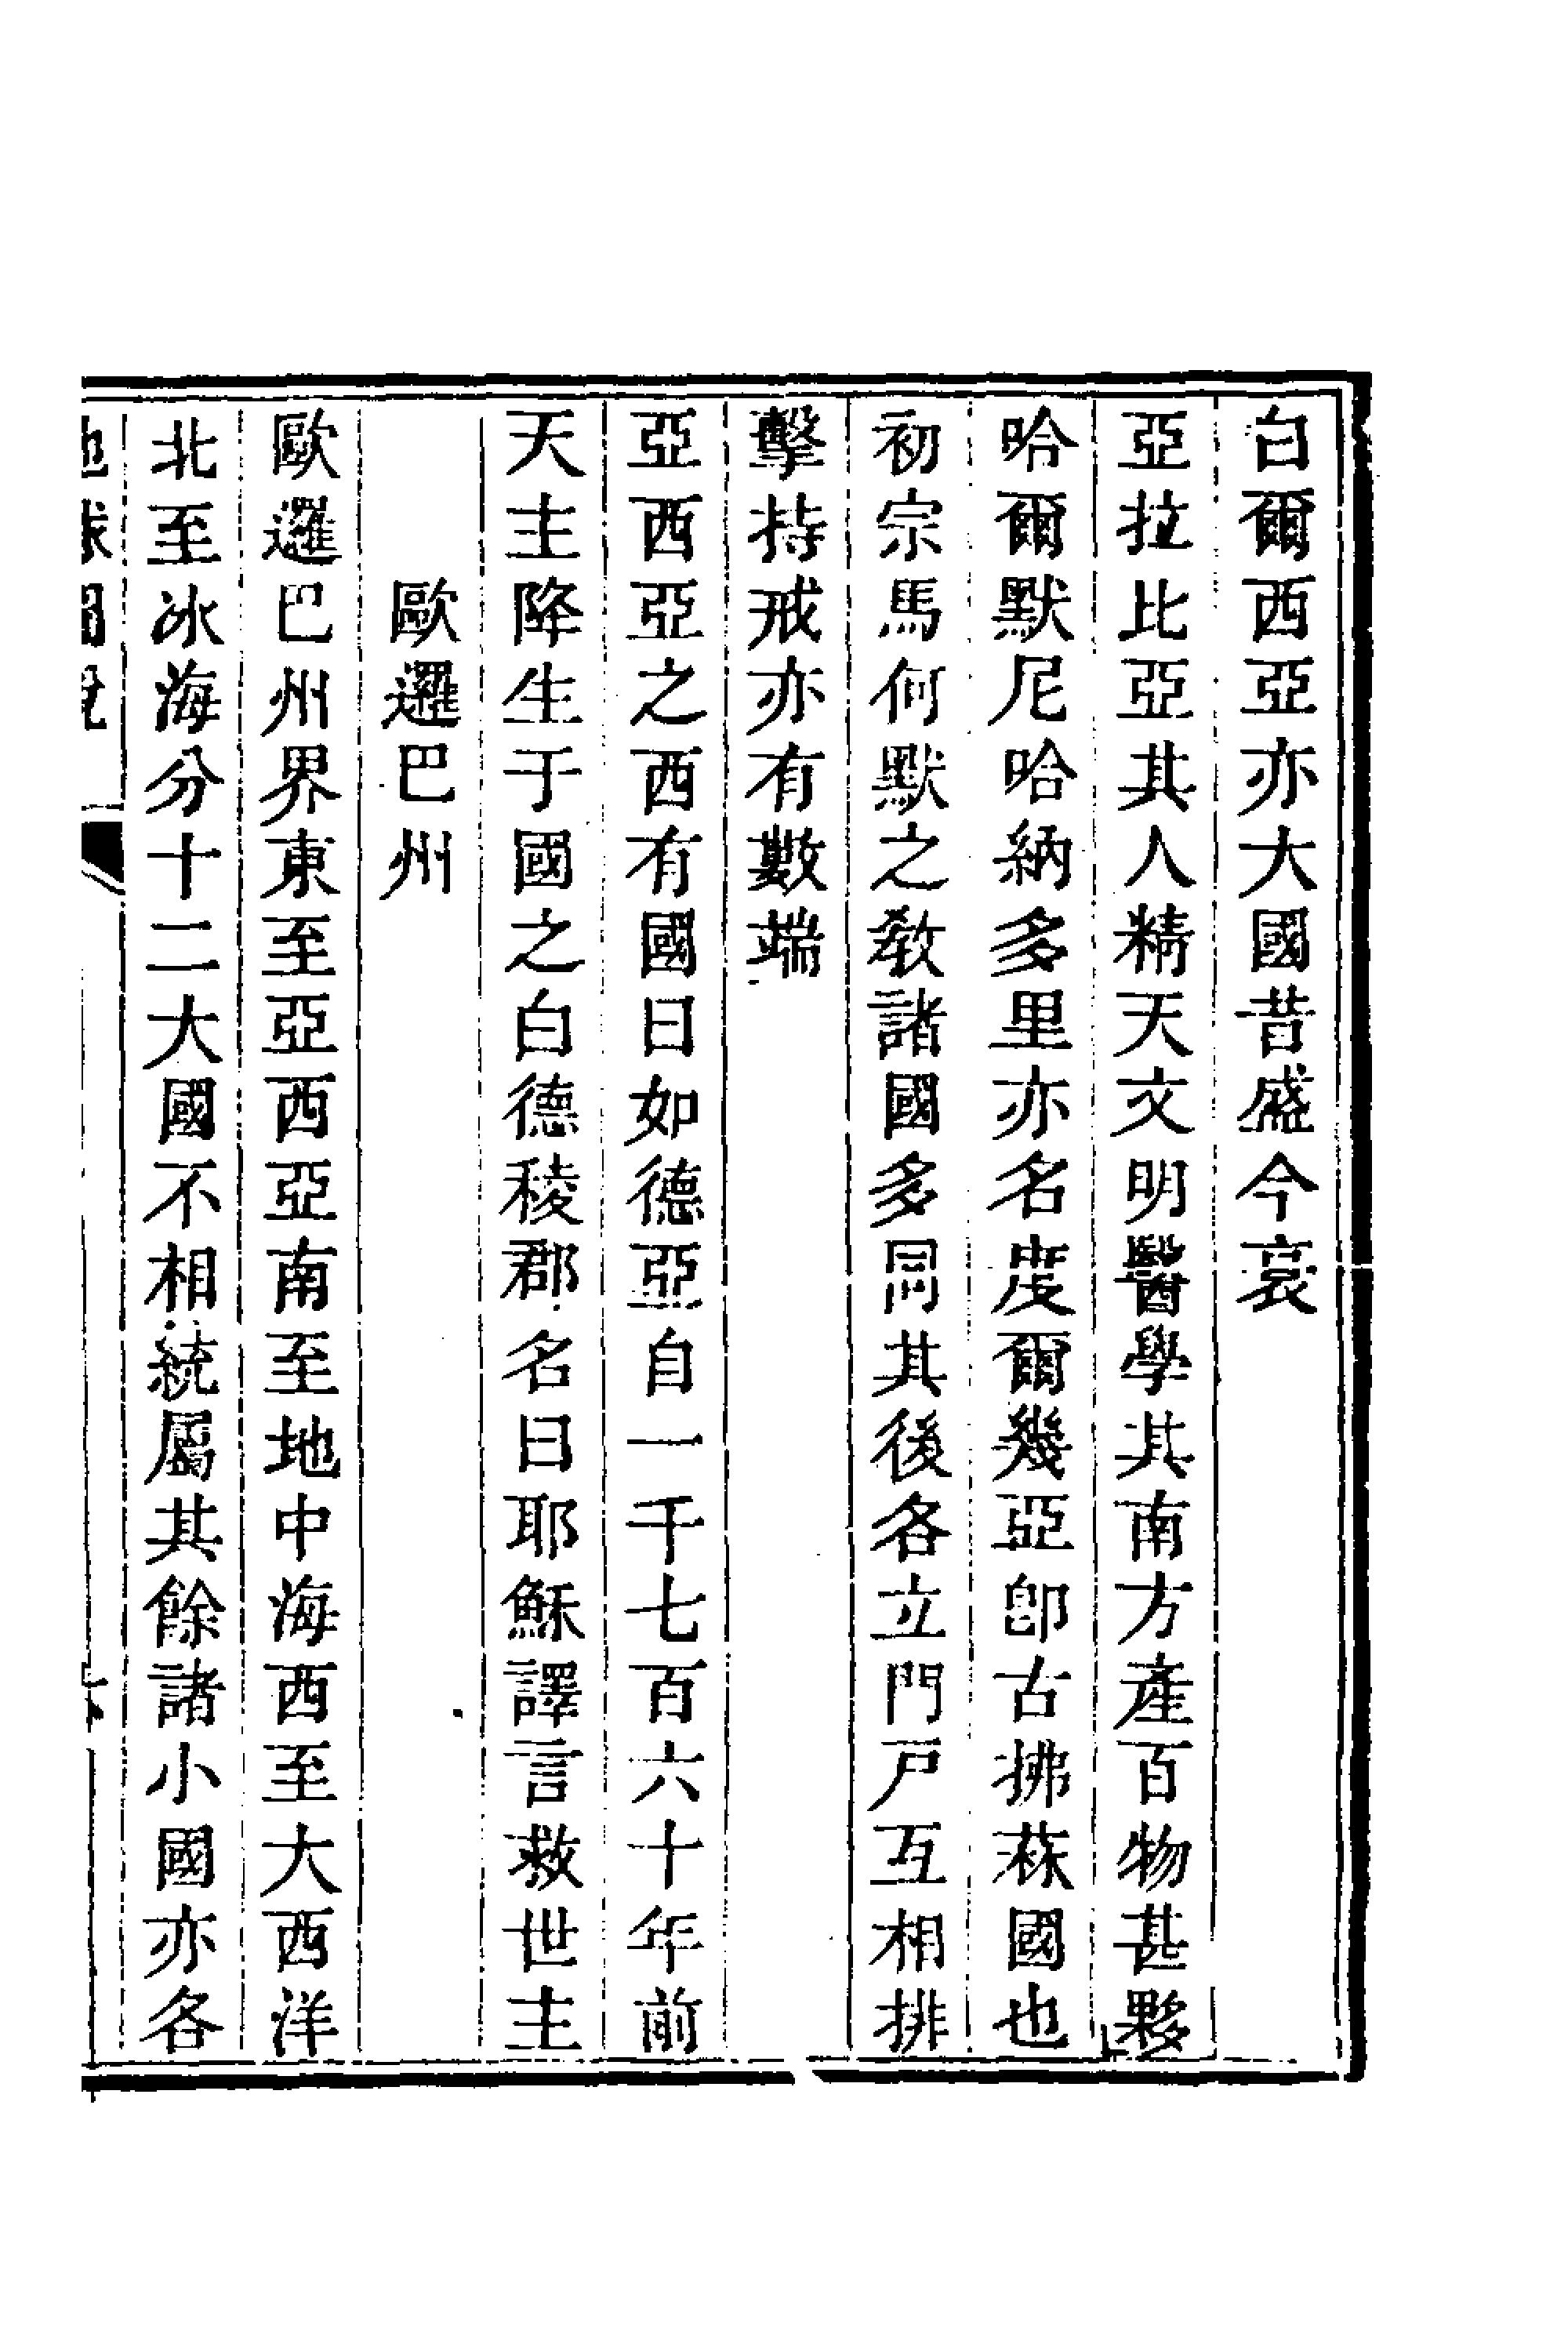 白爾西亞亦大國昔盛今衰
亞拉比亞其人精天文明醫學其南方產百物甚夥
哈爾默尼哈納多里亦名度爾幾亞卽古拂菻國也
初宗馬何默之敎諸國多同其後各立門戸互相排
擊持戒亦有數端
亞西亞之西有國曰如德亞自一千七百六十年前
天主降生于國之白德稜郡名曰耶穌譯言救世主
歐邏巴州
歐邏巴州界東至亞西亞南至地中海西至大西洋
北至冰海分十二大國不相統屬其餘諸小國亦各
地球圖說